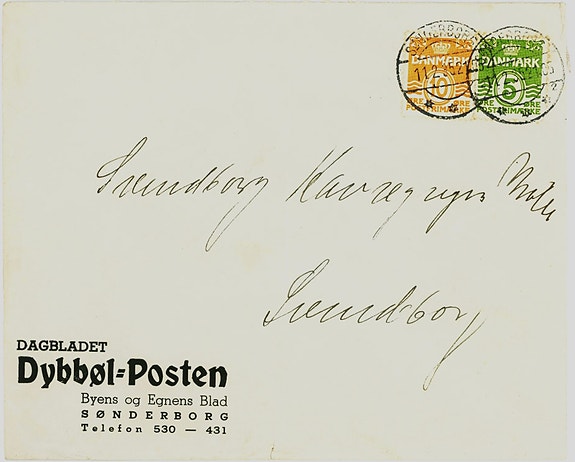 SØNDERBORG
DANMARK
10
ØRE
POSTFRIMÆRKE
DANMARK
5
ØRE ØRE
POSTFRIMÆRKE
Svendborg
Svendborg
DAGBLADET
Dybbøl=Posten
Byens og Egnens Blad
SØNDERBORG
Telefon 530 — 431